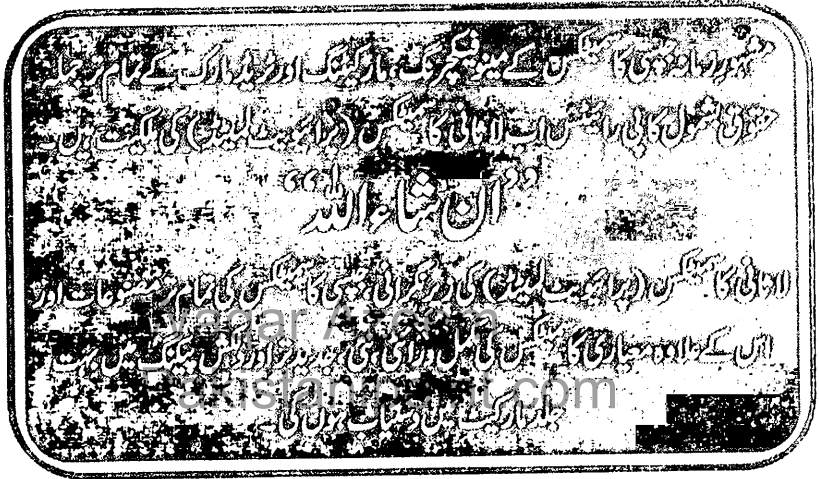 مشہور زمانہ جلبی کاسمیٹکس کے مینوفیکچرنگ، مارکیٹنگ اور ٹریڈ مارک کے تمام رجسٹرڈ
حقوق بشمول کاپی رائٹس اب لاثانی کاسمیٹکس (پرائیویٹ لمیٹڈ) کی ملکیت ہیں۔
”ان شاء اللہ“
لاثانی کاسمیٹکس (پرائیویٹ لمیٹڈ) کی زیر نگرانی کاسمیٹکس کی تمام تر مصنوعات اور
اس کے علاوہ معیاری کاسمیٹکس کی مکمل ورائٹی نئی، جدید تر اور دلکش پیکنگ میں بہت
جلد مارکیٹ میں دستیاب ہوں گی۔
Waqar A
Pakistan
.com